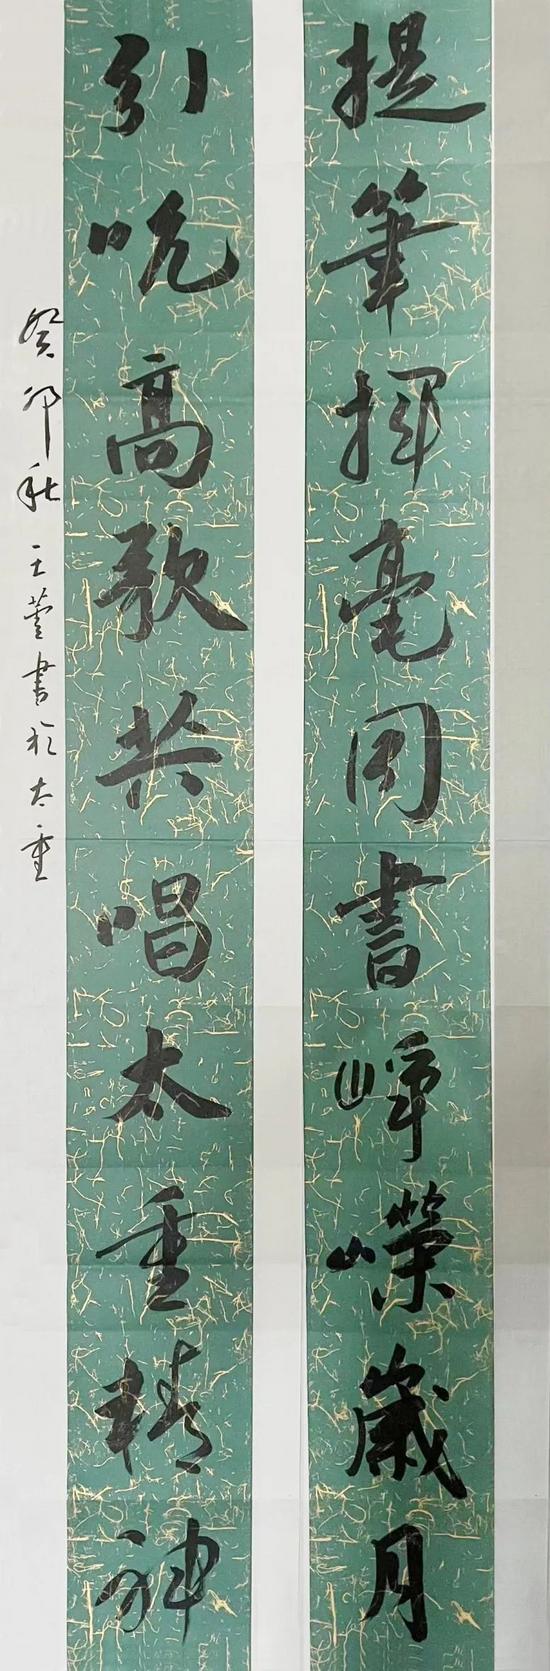 提筆揮毫同書崢嶸歲月
引吭高歌共唱太重精神
癸卯秋王蕾書於太重